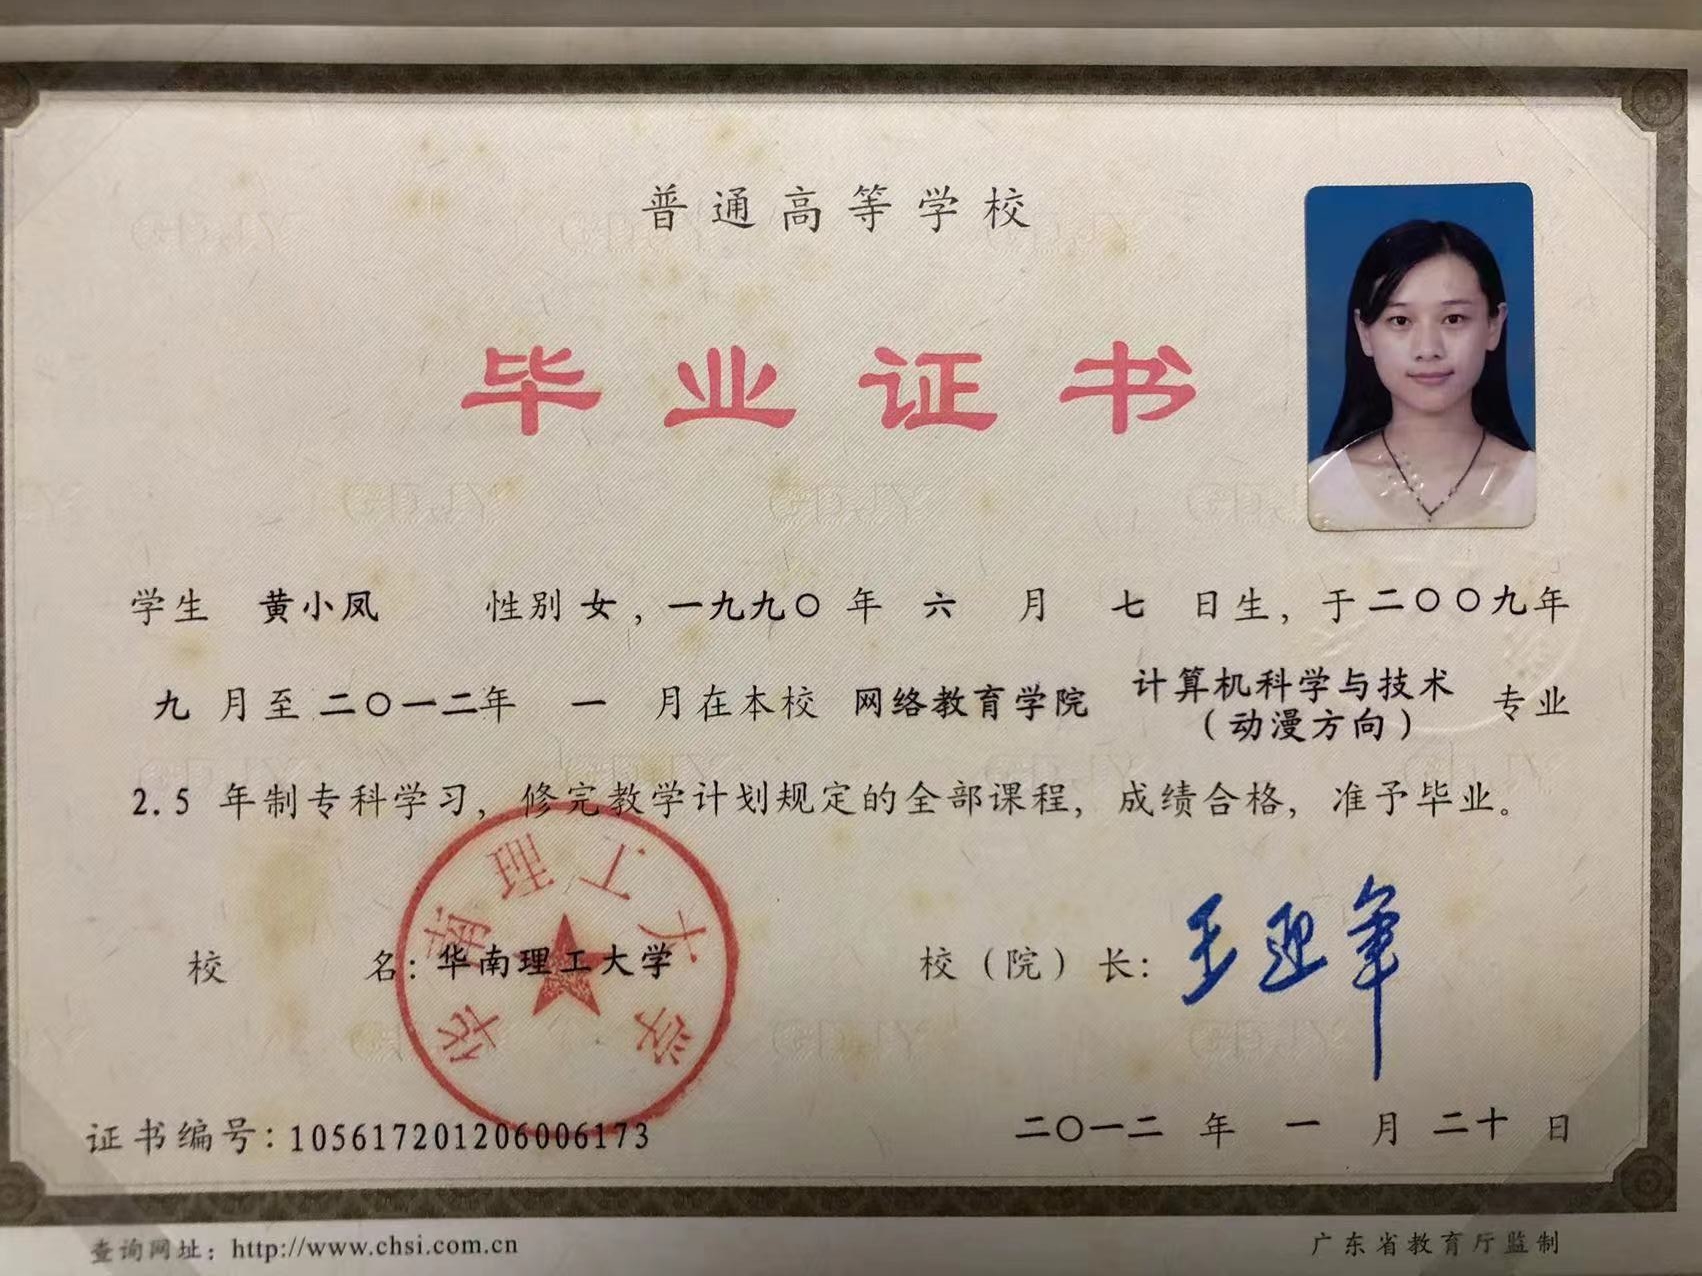 普通高等学校
毕业证书
学生 黄小凤 性别 女，一九九〇 年 六 月 七 日生，于 二〇〇九年
九 月至 二〇一二年 一 月在本校 网络教育学院 计算机科学与技术（动漫方向） 专业
2.5 年制专科学习，修完教学计划规定的全部课程，成绩合格，准予毕业。
华南理工大学
校 名：华南理工大学 校（院）长：
证书编号：105617201206006173 二〇一二 年 一 月 二十 日
查询网址：http://www.chsi.com.cn 广东省教育厅监制